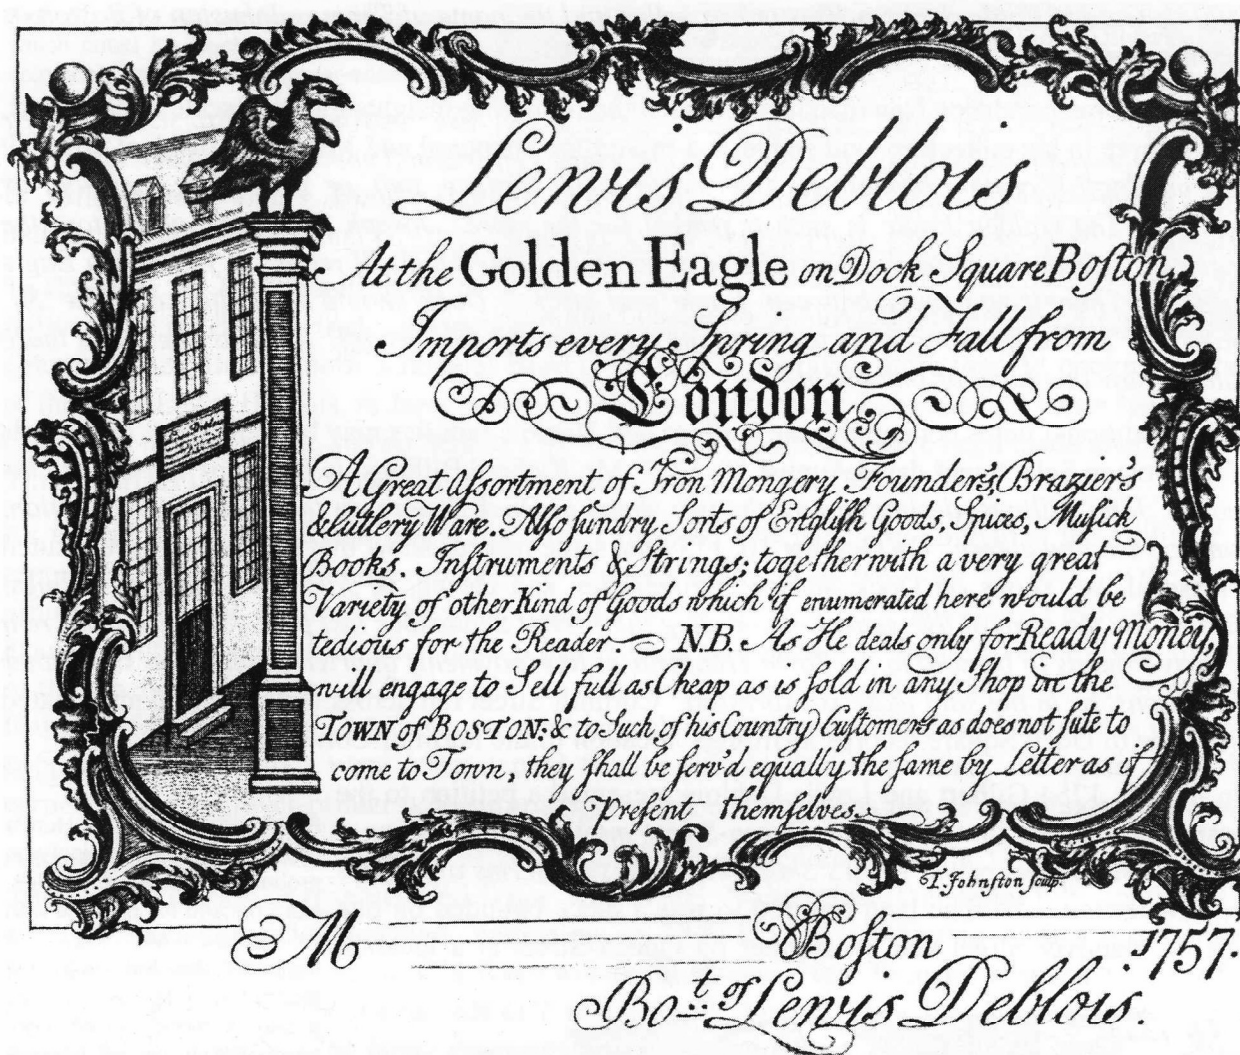 Lewis Deblois
At the Golden Eagle on Dock Square Boſton
Imports every Spring and Fall from
London
A Great Aſsortment of Iron Mongery Founder's, Brazier's
& Cutlery Ware. Alſo ſundry Sorts of Engliſh Goods, Spices, Muſick
Books. Inſtruments & Strings; together with a very great
Variety of other Kind of Goods which if enumerated here would be
tedious for the Reader. N.B. As He deals only for Ready Money,
will engage to Sell full as Cheap as is ſold in any Shop in the
TOWN of BOSTON: & to Such of his Country Cuſtomers as does not ſute to
come to Town, they ſhall be ſerv'd equally the ſame by Letter as if
Preſent themſelves.
T. Johnſton ſculp.
M Boſton 1757.
Bo.t of Lewis Deblois.